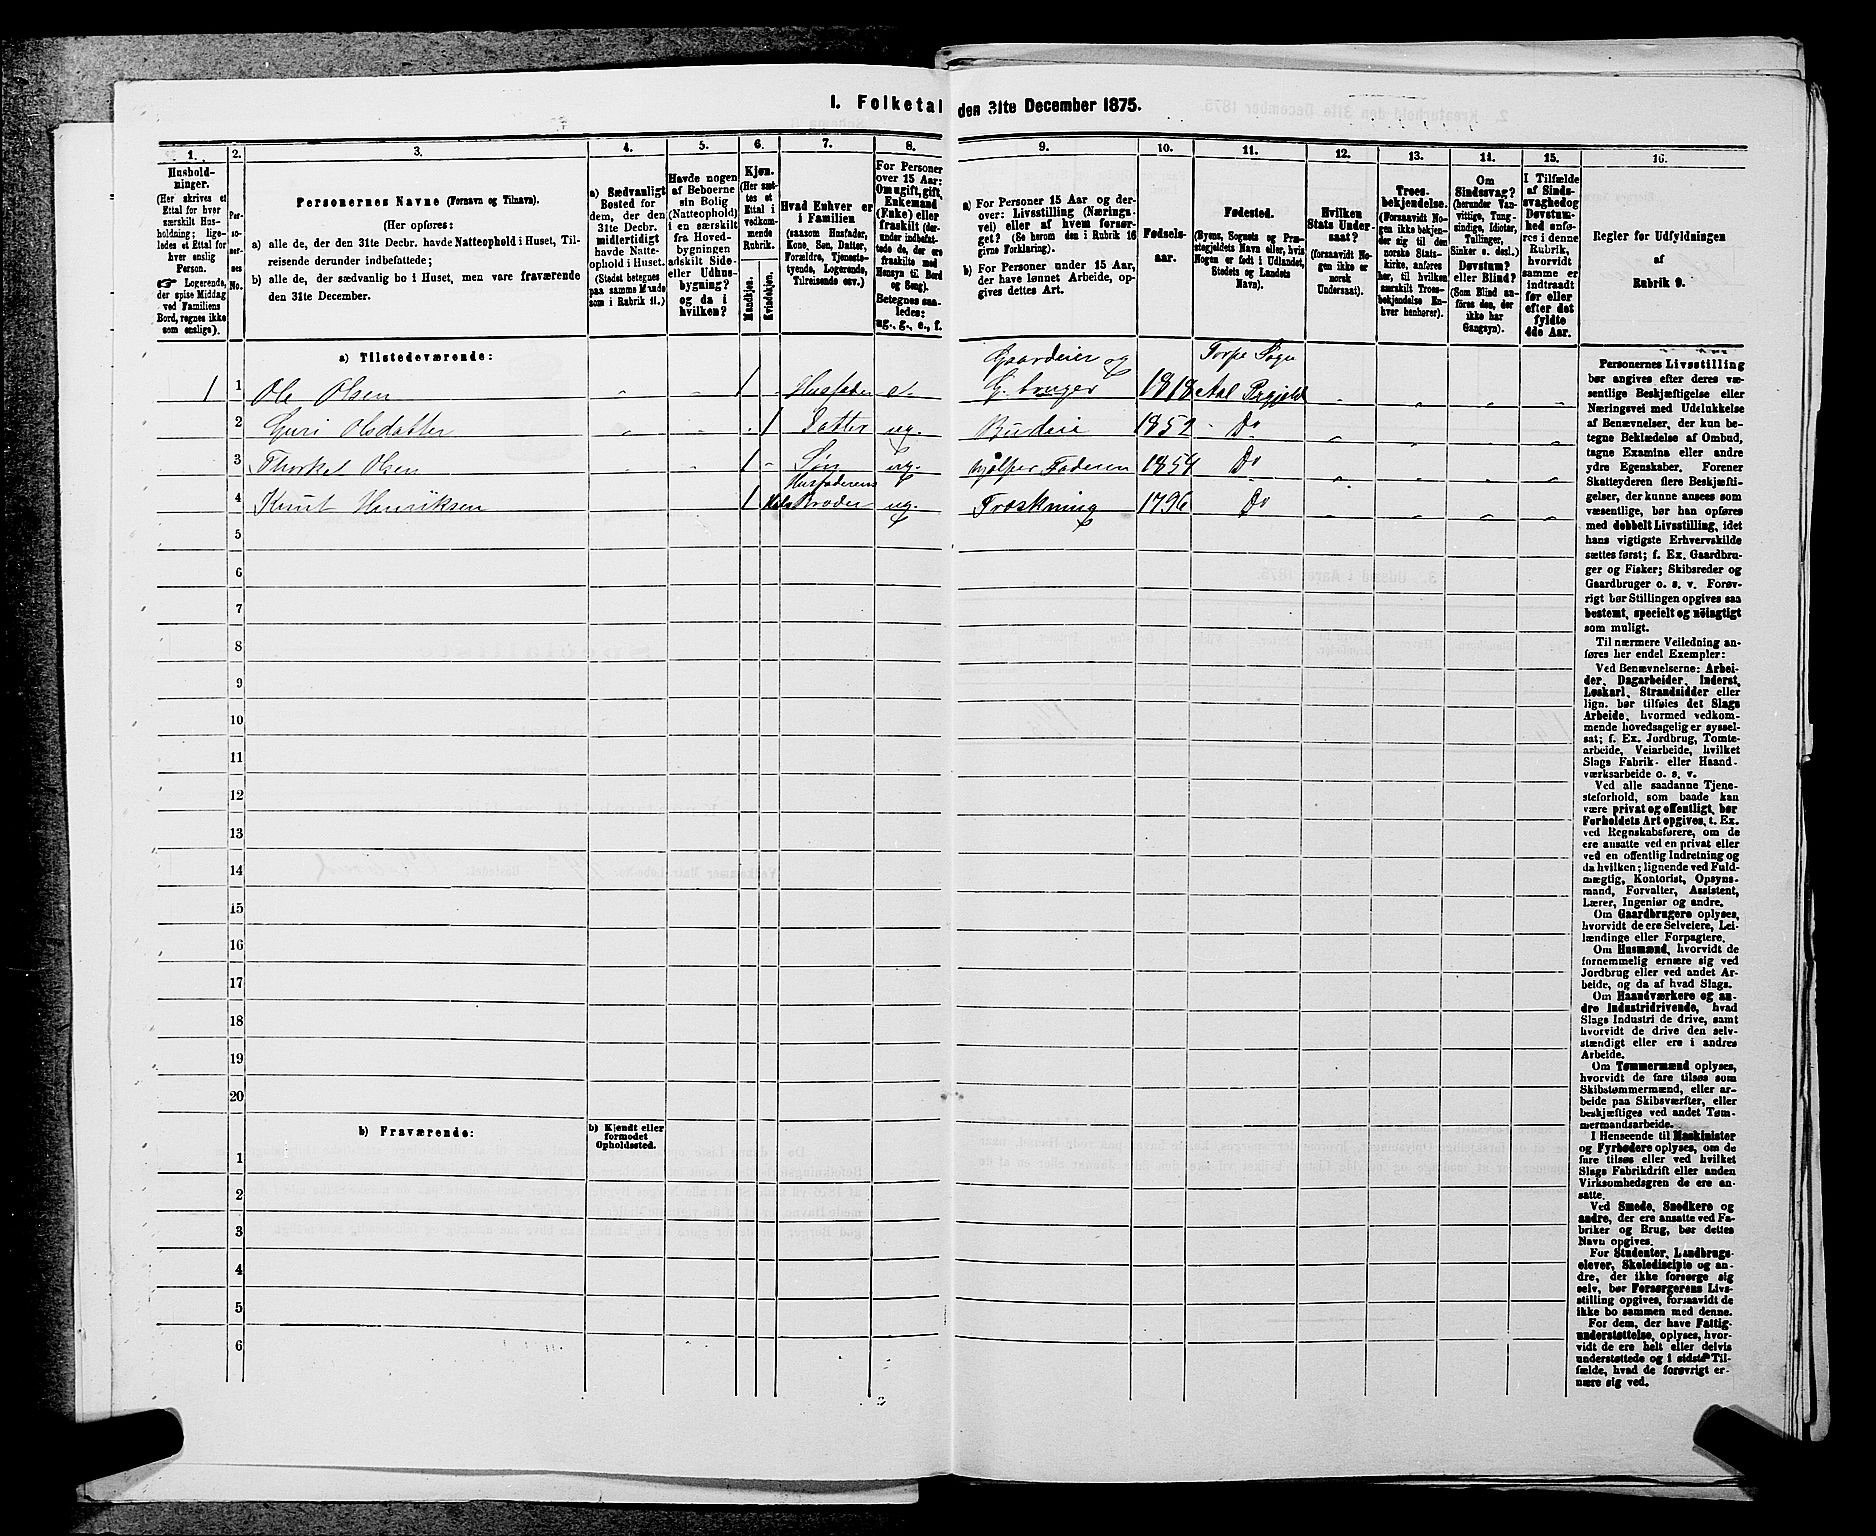 I. Folketal den 31te December 1875.
1.
Hushold-
ninger.
(Her skrives et
Ettal for hver
særskilt Hus-
holdning; lige-
ledes et Ettal for
hver enslig
Person.
☞ Logerende,
der spise Middag
ved Familiens
Bord, regnes ikke
som enslige).
2.
Per-
so-
ner-
nes
No.
3.
Personernes Navne (Fornavn og Tilnavn).
(Her opføres:
a) alle de, der den 31te Decbr. havde Natteophold i Huset, Til-
reisende derunder indbefattede;
b) alle de, der sædvanlig bo i Huset, men vare fraværende
den 31te December.
4.
a) Sædvanligt
Bosted for
dem, der den
31te Decbr.
midlertidigt
havde Natte-
ophold i Huset.
(Stedet betegnes
paa samme Maade
som i Rubrik 11.)
5.
Havde nogen
af Beboerne
sin Bolig
(Natteophold)
i en særskilt
fra Hoved-
bygningen
adskilt Side-
eller Udhus-
bygning?
og da i
hvilken?
6.
Kjøn.
(Her sæt-
tes et
Ettal i
vedkom-
mende
Rubrik.
Mandkjøn.
Kvindekjøn.
7.
Hvad Enhver er
i Familien
(saasom Husfader,
Kone, Søn, Datter,
Forældre, Tjeneste-
tyende, Logerende,
Tilreisende osv.)
8.
For Personer
over 15 Aar:
Om ugift, gift,
Enkemand
(Enke) eller
fraskilt (der-
under indbefat-
tede de, der ere
fraskilte med
Hensyn til Bord
og Seng).
Betegnes saa-
ledes:
ug., g., e., f.
9.
a) For Personer 15 Aar og der-
over: Livsstilling (Nærings-
vei) eller af hvem forsør-
get? (Se herom den i Rubrik 16
givne Forklaring).
b) For Personer under 15 Aar,
der have lønnet Arbeide, op-
gives dettes Art.
10.
Fødsels-
aar.
11.
Fødested.
(Byens, Sognets og Præ-
stegjeldets Navn eller, hvis
Nogen er født i Udlandet,
Stedets og Landets
Navn).
12.
Hvilken
Stats Under-
saat?
(forsaavidt No-
gen ikke er
norsk
Undersaat).
13.
Troes-
bekjendelse.
(Forsaavidt No-
gen ikke bekjen-
der sig til den
norske Stats-
kirke, anføres
her, til hvilken
særskilt Troes-
bekjendelse En-
hver henhører).
14.
Om
Sindssvag?
(herunder Van-
vittige, Tung-
sindige, Idioter,
Tullinger,
Sinker o. desl.).
Døvstum?
eller Blind?
(Som Blind an-
føres den, der
ikke har
Gangsyn).
15.
I Tilfælde
af Sinds-
svaghed og
Døvstum-
hed anfø-
res i denne
Rubrik,
hvorvidt
samme er
indtraadt
før eller
efter det
fyldte
4de Aar.
16.
Regler for Udfyldningen
af
Rubrik 9.
a) Tilstedeværende:
1 1 Ole Olsen 1 Husfader e. Gaardeier og G. bruger 1818 Torpe Sogn Aal Prgjeld
2 Guri Olsdatter 1 Datter ug. Budeie 1852 Do
3 Thorkel Olsen 1 Søn ug. hjelper Faderen 1854 Do
4 Knut Henriksen 1 Husfaderens Broder ug. Træskning 1796 Do
5
6
7
8
9
10
11
12
13
14
15
16
17
18
19
20
b) Fraværende:
b) Kjendt eller
formodet
Opholdssted.
1
2
3
4
5
6
Personernes Livsstilling
bør angives efter deres væ-
sentlige Beskjæftigelse eller
Næringsvei med Udelukkelse
af Benævnelser, der kun be-
tegne Beklædelse af Ombud,
tagne Examina eller andre
ydre Egenskaber. Forener
Skatteyderen flere Beskjæfti-
gelser, der kunne ansees som
væsentlige, bør han opføres
med dobbelt Livsstilling, idet
hans vigtigste Erhvervskilde
sættes først; f. Ex. Gaardbru-
ger og Fisker; Skibsreder og
Gaardbruger o. s. v. Forøv-
rigt bør Stillingen opgives saa
bestemt, specielt og nøiagtigt
som muligt.
Til nærmere Veiledning an-
føres her endel Exempler:
Ved Benævnelserne: Arbei-
der, Dagarbeider, Inderst,
Løskarl, Strandsidder eller
lign. bør tilføies det Slags
Arbeide, hvormed vedkom-
mende hovedsagelig er syssel-
sat; f. Ex. Jordbrug, Tomte-
arbeide, Veiarbeide, hvilket
Slags Fabrik- eller Haand-
værksarbeide o. s. v.
Ved alle saadanne Tjene-
steforhold, som baade kan
være privat og offentligt, bør
Forholdets Art opgives, t. Ex.
ved Regnskabsførere, om de
ere ansatte ved en privat eller
ved en offentlig Indretning og
da hvilken; lignende ved Fuld-
mægtig, Kontorist, Opsyns-
mand, Forvalter, Assistent,
Lærer, Ingeniør og andre.
Om Gaardbrugere oplyses,
hvorvidt de ere Selveiere, Lei-
lændinge eller Forpagtere.
Om Husmænd, hvorvidt de
fornemmelig ernære sig ved
Jordbrug eller ved andet Ar-
beide, og da af hvad Slags.
Om Haandværkere og an-
dre Industridrivende, hvad
Slags Industri de drive, samt
hvorvidt de drive den selv-
stændigt eller ere i andres
Arbeide.
Om Tømmermænd oplyses,
hvorvidt de fare tilsøs som
Skibstømmermænd, eller ar-
beide paa Skibsværfter, eller
beskjæftiges ved andet Tøm-
mermandsarbeide.
I Henseende til Maskinister
og Fyrbødere oplyses, om de
fare tilsøs eller ved hvilket
Slags Fabrikdrift eller anden
Virksomhedsgren de ere an-
satte.
Ved Smede, Snedkere og
andre, der ere ansatte ved Fa-
briker og Brug, bør dettes
Navn opgives.
For Studenter, Landbrugs-
elever, Skoledisciple og an-
dre, der ikke forsørge sig
selv, bør Forsørgerens Livs-
stilling opgives, forsaavidt de
ikke bo sammen med denne.
For dem, der have Fattig-
understøttelse, oplyses, hvor-
vidt de ere helt eller delvis
understøttede og i sidste Til-
fælde, hvad de forøvrigt er-
nære sig ved.